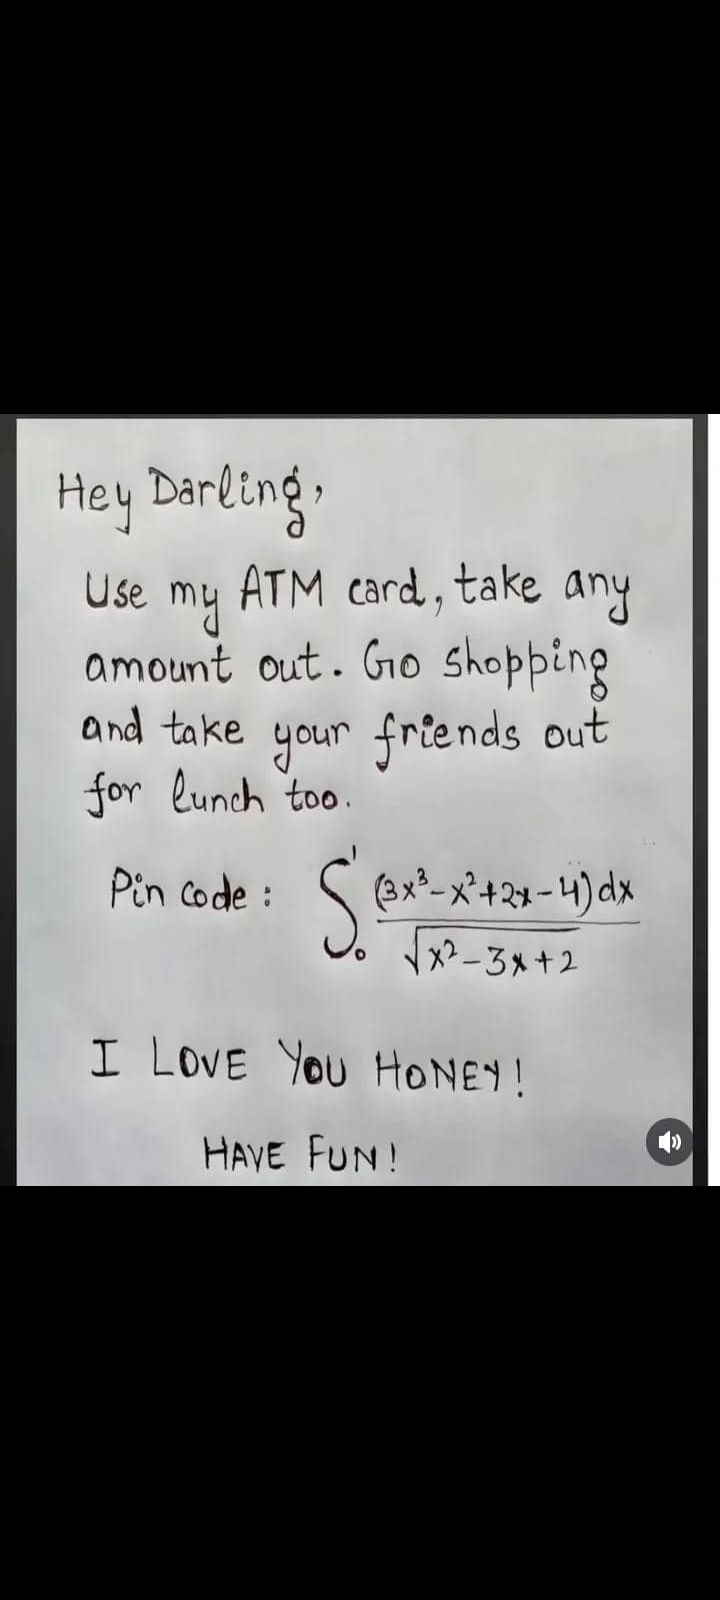 Hey Darling,
Use my ATM card, take any
amount out. Go shopping
and take your friends out
for lunch too.
Pin code : ∫₀¹ (3x³-x²+2x-4)dx / √x²-3x+2
I LOVE YOU HONEY!
HAVE FUN!